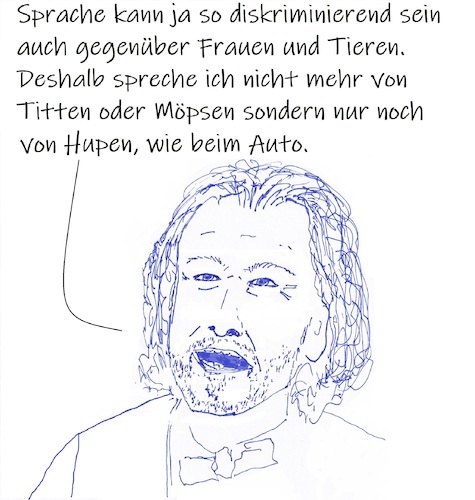 Sprache kann ja so diskriminierend sein
auch gegenüber Frauen und Tieren.
Deshalb spreche ich nicht mehr von
Titten oder Möpsen sondern nur noch
von Hupen, wie beim Auto.